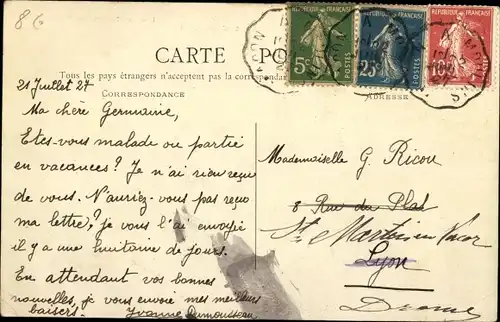 8 G
RÉPUBLIQUE FRANÇAISE
RÉPUBLIQUE FRANÇAISE
RÉPUBLIQUE FRANÇAISE
POSTES
POSTES
POSTES
5c
25c
10c
CARTE PO
Tous les pays étrangers n'acceptent pas la correspondan
CORRESPONDANCE
21 Juillet 27
Ma chère Germaine,
Etes-vous malade ou partie
en vacances? Je n'ai rien reçu
de vous. N'auriez-vous pas reçu
ma lettre? je vous l'ai envoyée
il y a une huitaine de jours.
En attendant vos bonnes
nouvelles, je vous envoie mes meilleurs
baisers! Yvonne Dumousseau
ADRESSE
Mademoiselle G. Ricou
8 Rue du Plat
St Martin en Vercor
Lyon
Drome